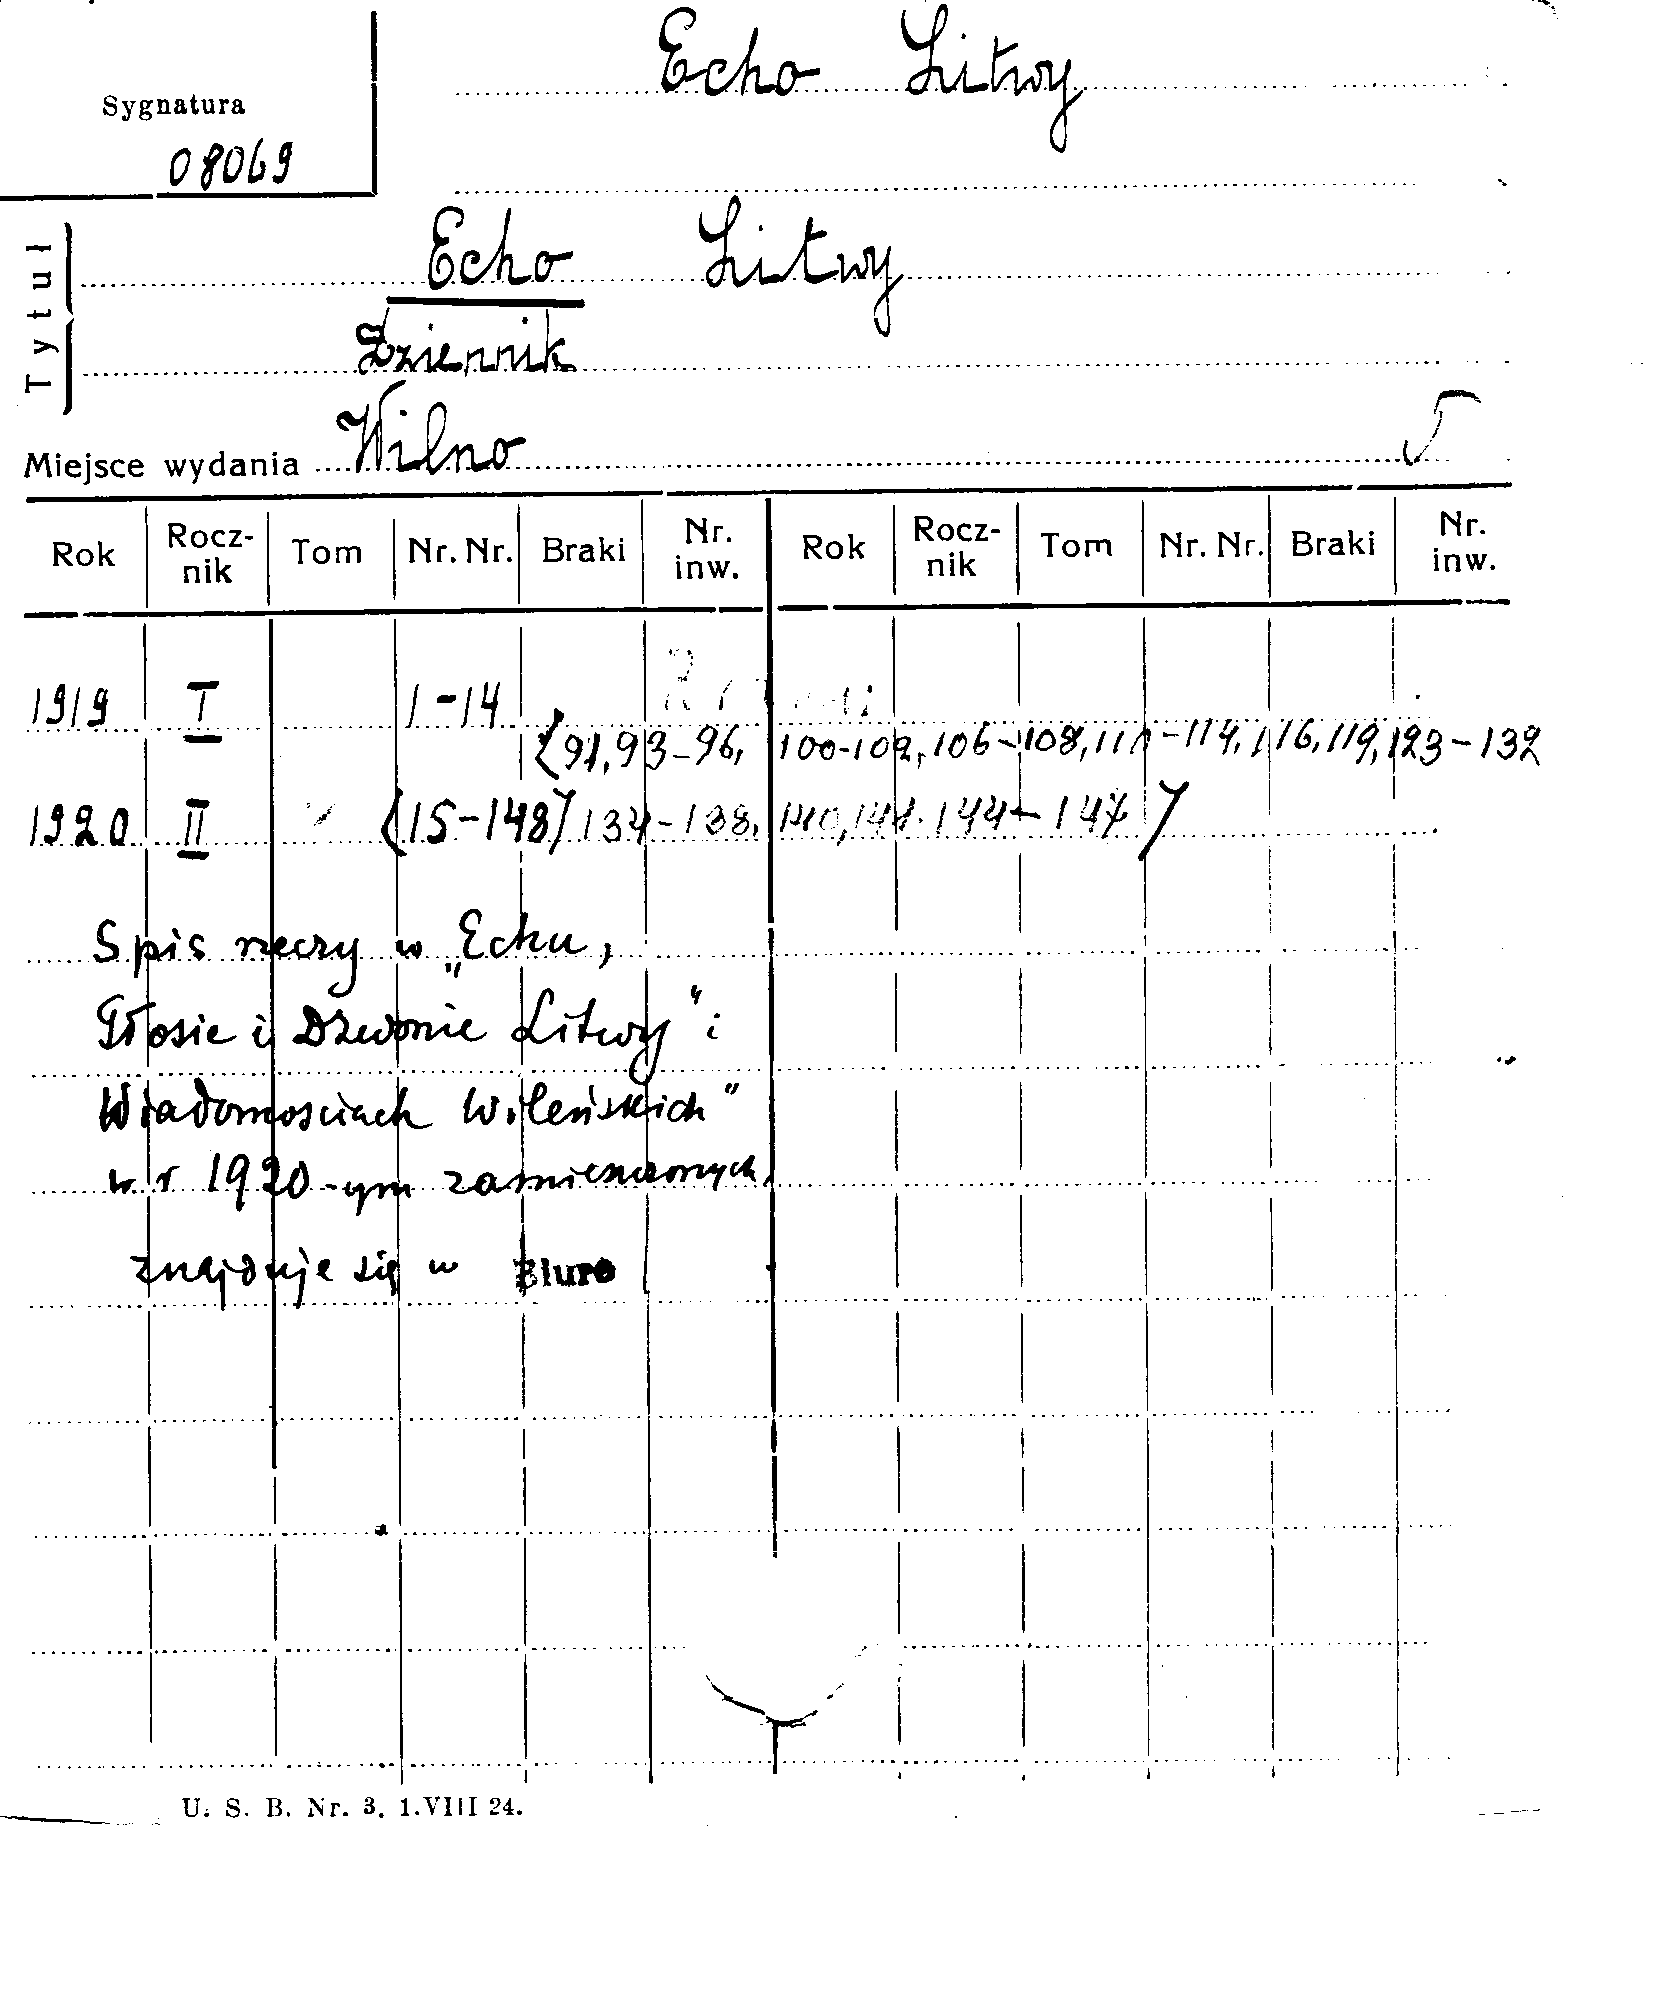 Echo Litwy
Sygnatura
08069
Tytuł
Echo Litwy
Dziennik
Miejsce wydania Wilno
Rok Rocz-nik Tom Nr. Nr. Braki Nr. inw. Rok Rocz-nik Tom Nr. Nr. Braki Nr. inw.
1919 I 1-14
(91, 93-96, 100-102, 106-108, 111-114, 116, 119, 123-132
1920 II (15-148) 134-138, 140, 141, 144-147)
Spis rzeczy w „Echu,
Głosie i Dzwonie Litwy" i
Wiadomościach Wileńskich"
w r 1920-ym zamieszczonych
znajduje się w Biuro
U. S. B. Nr. 3. 1.VIII 24.